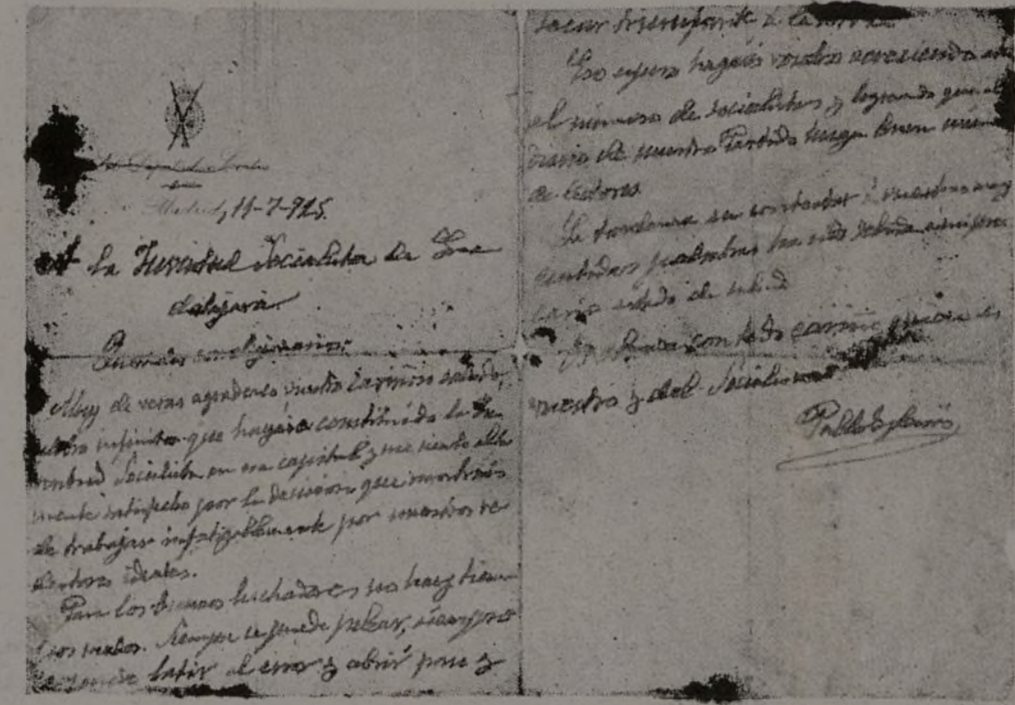 Madrid, 11-7-925.
A la Juventud Socialista de Gua
dalajara
Queridos correligionarios:
Muy de veras agradezco vuestro cariñoso saludo,
celebro infinito que hayáis constituído la Ju
ventud Socialista en esa capital y me siento alta
mente satisfecho por la decisión que mostráis
de trabajar infatigablemente por nuestros re
dentores ideales.
Para los buenos luchadores no hay tiem
pos malos. Siempre se puede pelear, siempre
se puede batir al error y abrir paso y
sacar triunfante a la
Eso espero hagáis vosotros acreciendo
el número de socialistas y logrando que el
diario de nuestro Partido tenga buen núme
de lectores.
La tardanza en contestar a vuestras muy
sentidas palabras ha sido debida a mi pre
cario estado de salud
con todo cariño
vuestro y del Socialismo
Pablo Iglesias